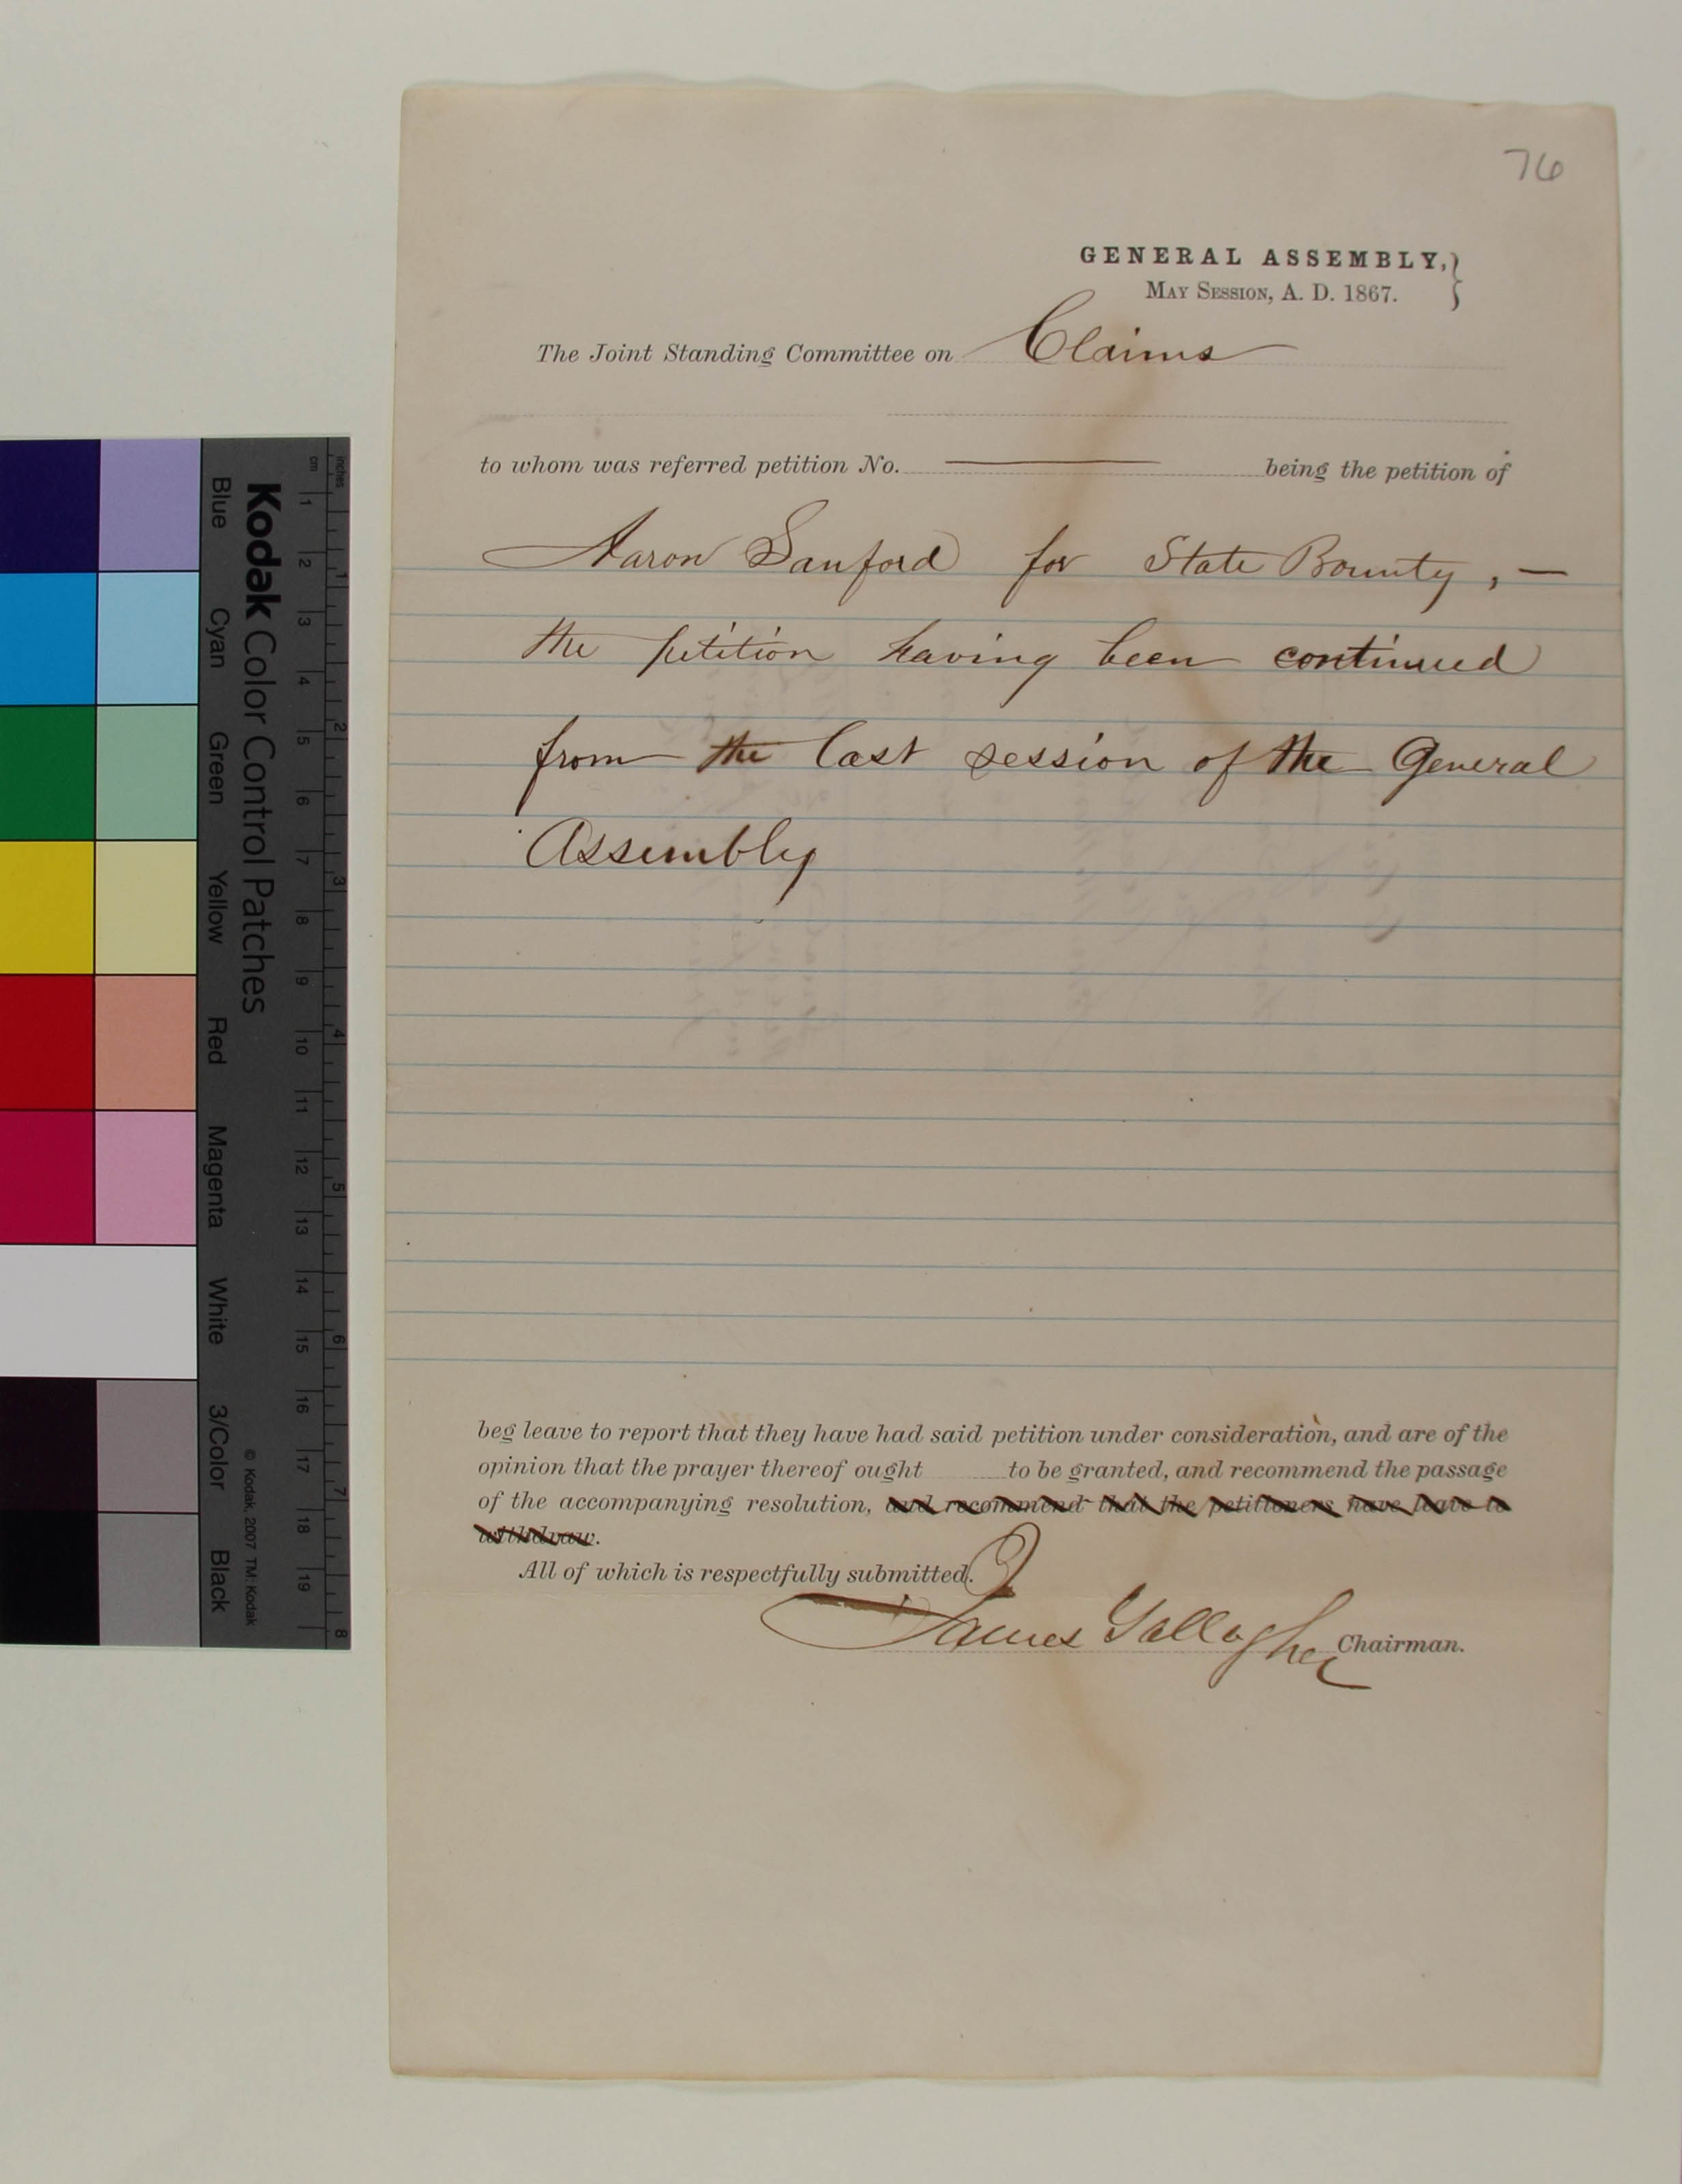 76
GENERAL ASSEMBLY,}
MAY SESSION, A. D. 1867.
The Joint Standing Committee on Claims
to whom was referred petition No. ——— being the petition of
Aaron Sanford for State Bounty, —
the petition having been continued
from the last session of the General
Assembly
beg leave to report that they have had said petition under consideration, and are of the
opinion that the prayer thereof ought to be granted, and recommend the passage
of the accompanying resolution, and recommend that the petitioners have leave to
withdraw.
All of which is respectfully submitted.
James Gallagher Chairman.
Kodak Color Control Patches
Blue Cyan Green Yellow Red Magenta White 3/Color Black
© Kodak, 2007 TM: Kodak
cm 1 2 3 4 5 6 7 8 9 10 11 12 13 14 15 16 17 18 19
inches 1 2 3 4 5 6 7 8